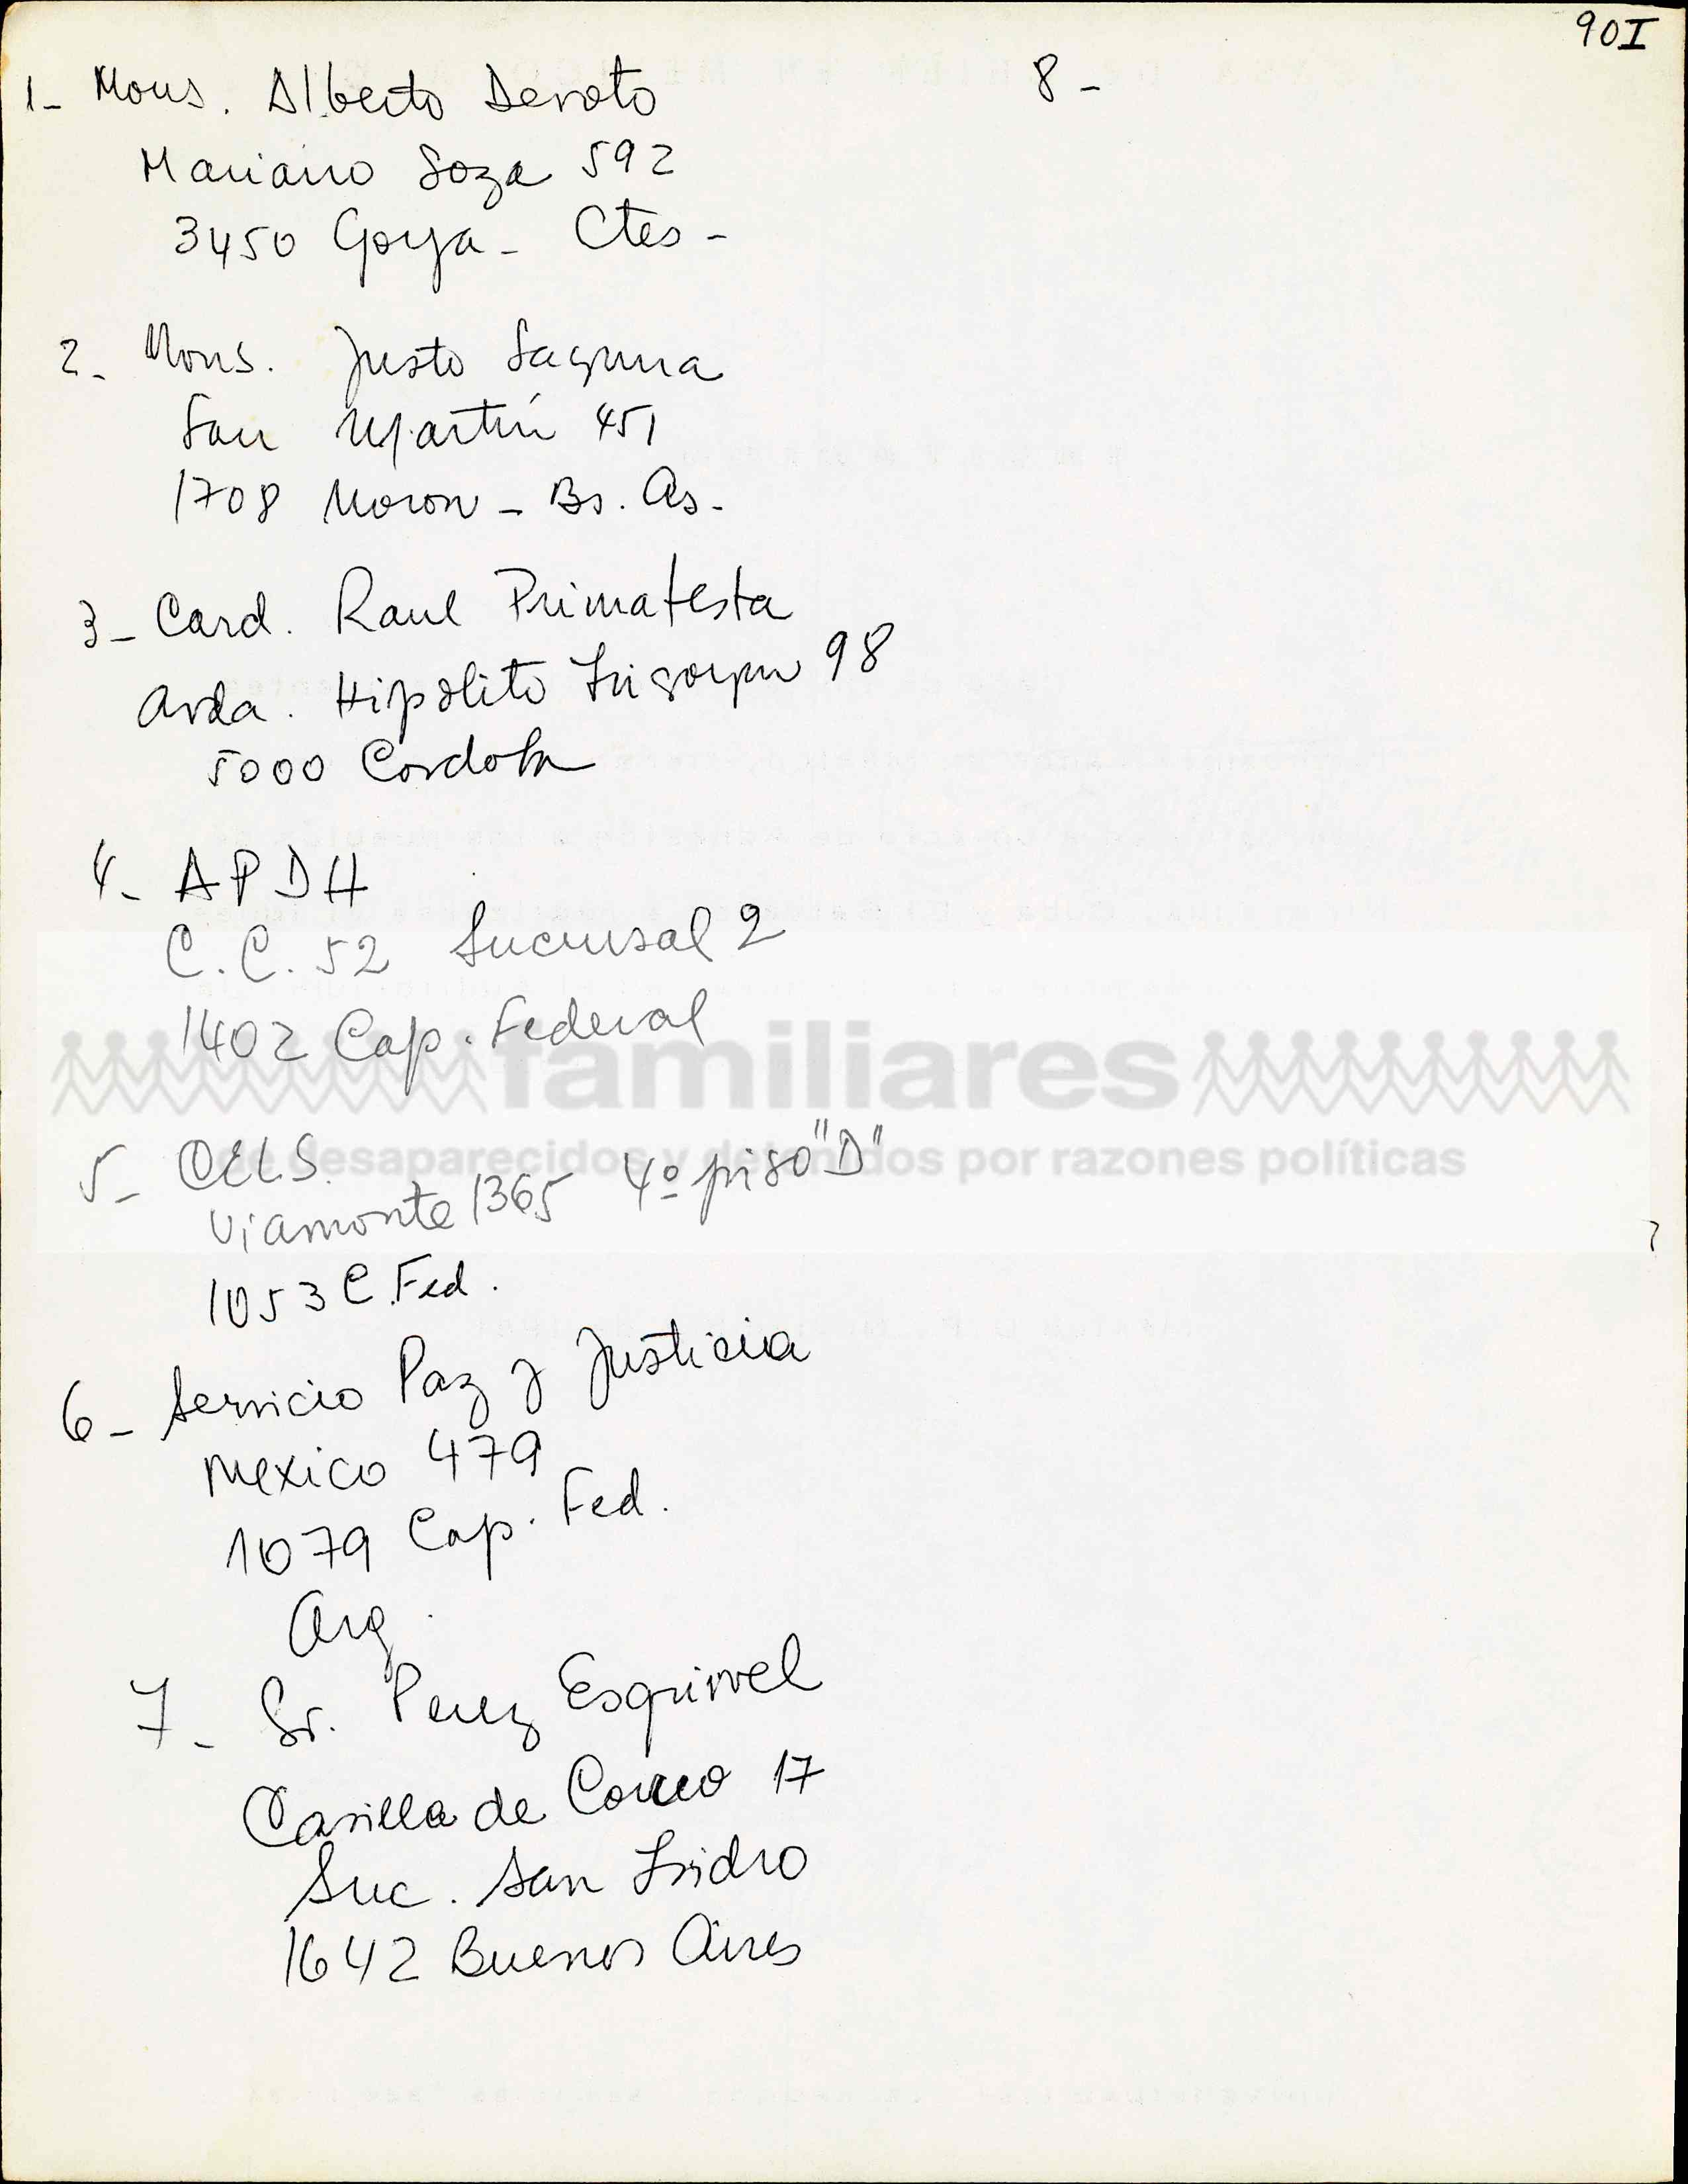 90I
1- Mons. Alberto Devoto
Mariano Loza 592
3450 Goya - Ctes -
2- Mons. Justo Laguna
San Martín 451
1708 Moron - Bs. As.
3- Card. Raul Primatesta
Avda. Hipolito Irigoyen 98
5000 Cordoba
4- APDH
C.C. 52 Sucursal 2
1402 Cap. Federal
familiares
de desaparecidos y detenidos por razones políticas
5- CELS.
Viamonte 1365 4º piso "D"
1053 C. Fed.
6- Servicio Paz y Justicia
Mexico 479
1079 Cap. Fed.
Arg.
7- Sr. Perez Esquivel
Casilla de Correo 17
Suc. San Isidro
1642 Buenos Aires
8-